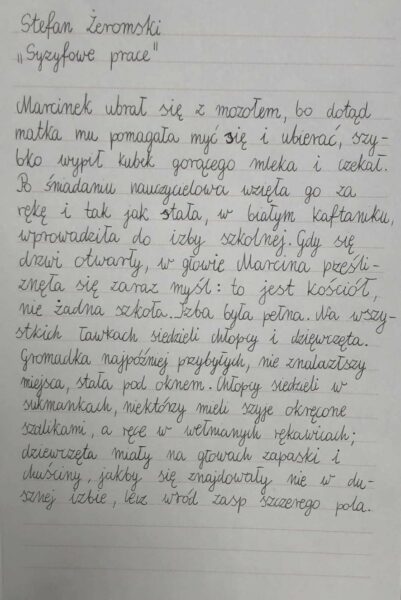 Stefan Żeromski
„Syzyfowe prace"
Marcinek ubrał się z mozołem, bo dotąd
matka mu pomagała myć się i ubierać, szy-
bko wypił kubek gorącego mleka i czekał.
Po śniadaniu nauczycielowa wzięła go za
rękę i tak jak stała, w białym kaftaniku,
wprowadziła do izby szkolnej. Gdy się
drzwi otwarły, w głowie Marcina prześli-
znęła się zaraz myśl: to jest kościół,
nie żadna szkoła. Izba była pełna. Na wszy-
stkich ławkach siedzieli chłopcy i dziewczęta.
Gromadka najpóźniej przybyłych, nie znalazłszy
miejsca, stała pod oknem. Chłopcy siedzieli w
sukmankach, niektórzy mieli szyje okręcone
szalikami, a ręce w wełnianych rękawicach;
dziewczęta miały na głowach zapaski i
chuściny, jakby się znajdowały nie w du-
sznej izbie, lecz wśród zasp szczerego pola.